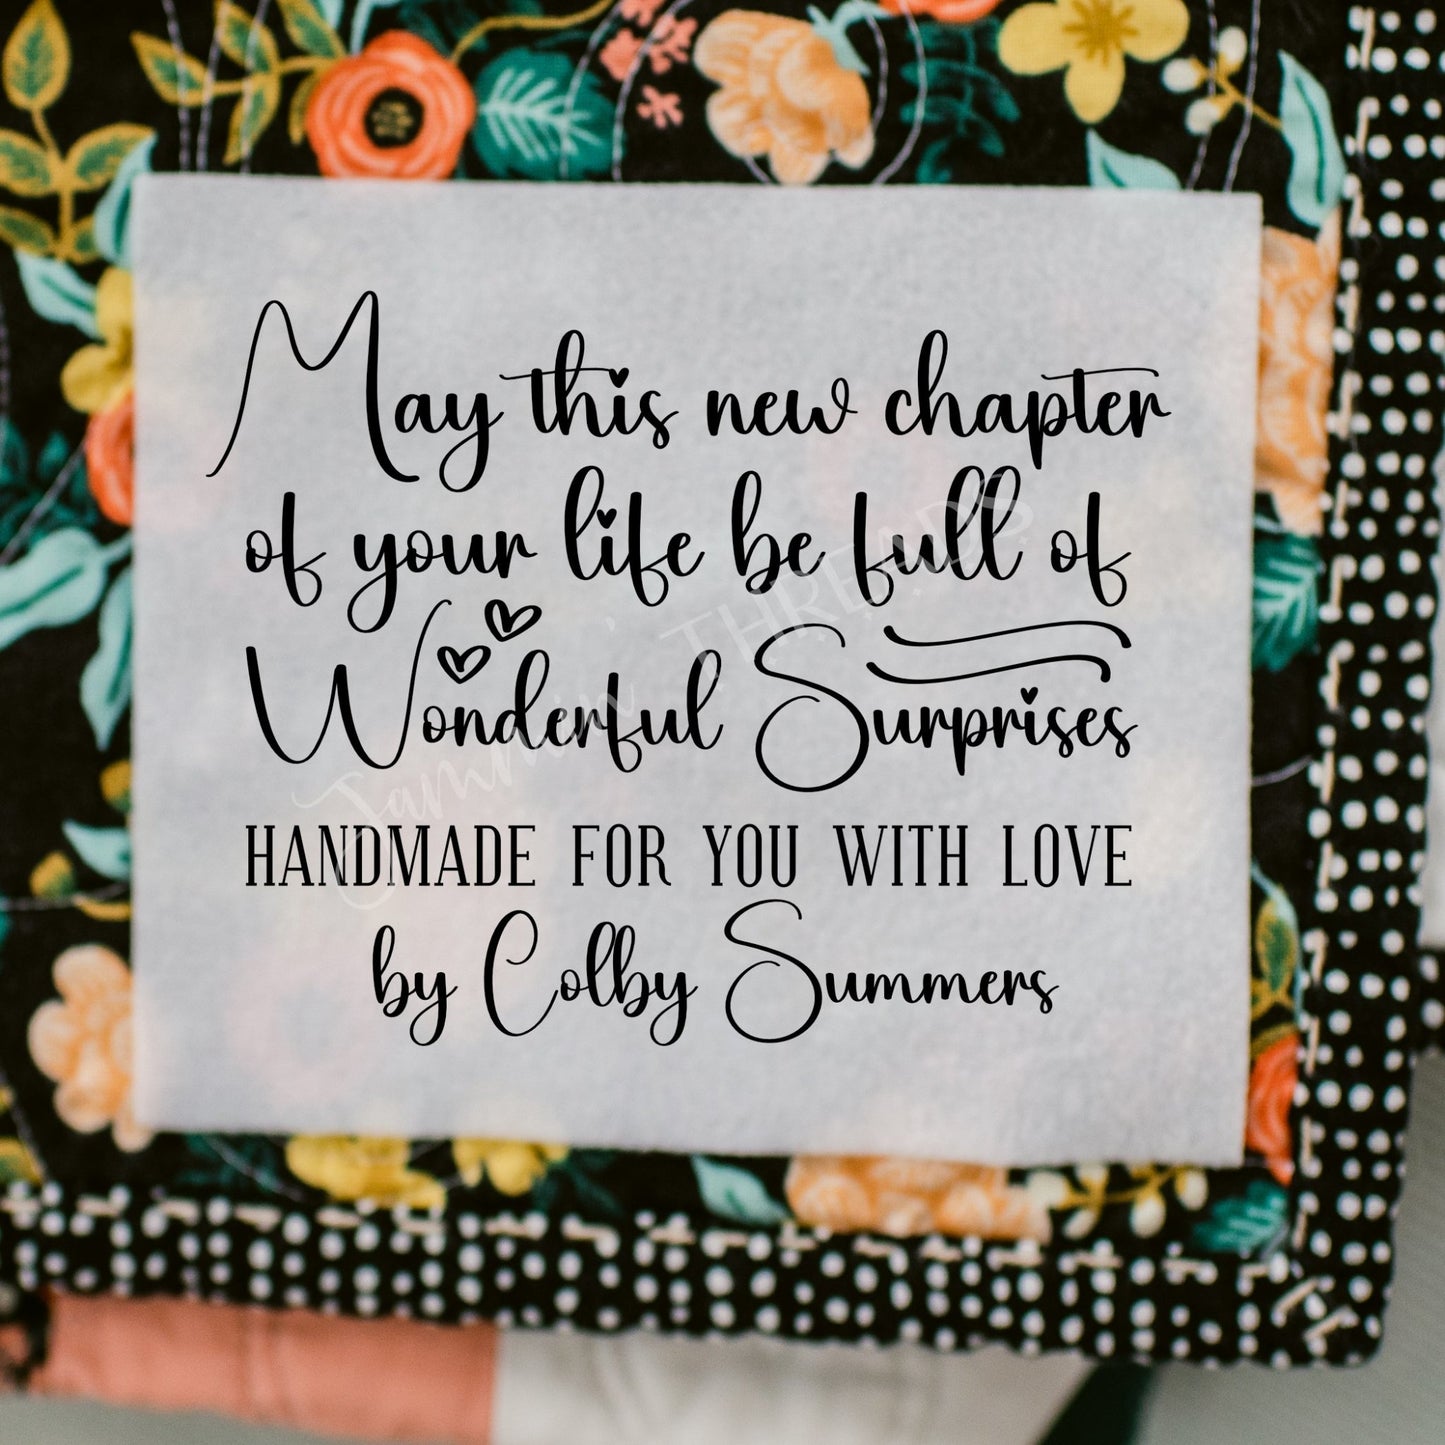 May this new chapter
of your life be full of
Wonderful Surprises
HANDMADE FOR YOU WITH LOVE
by Colby Summers
Jammin' THREADS